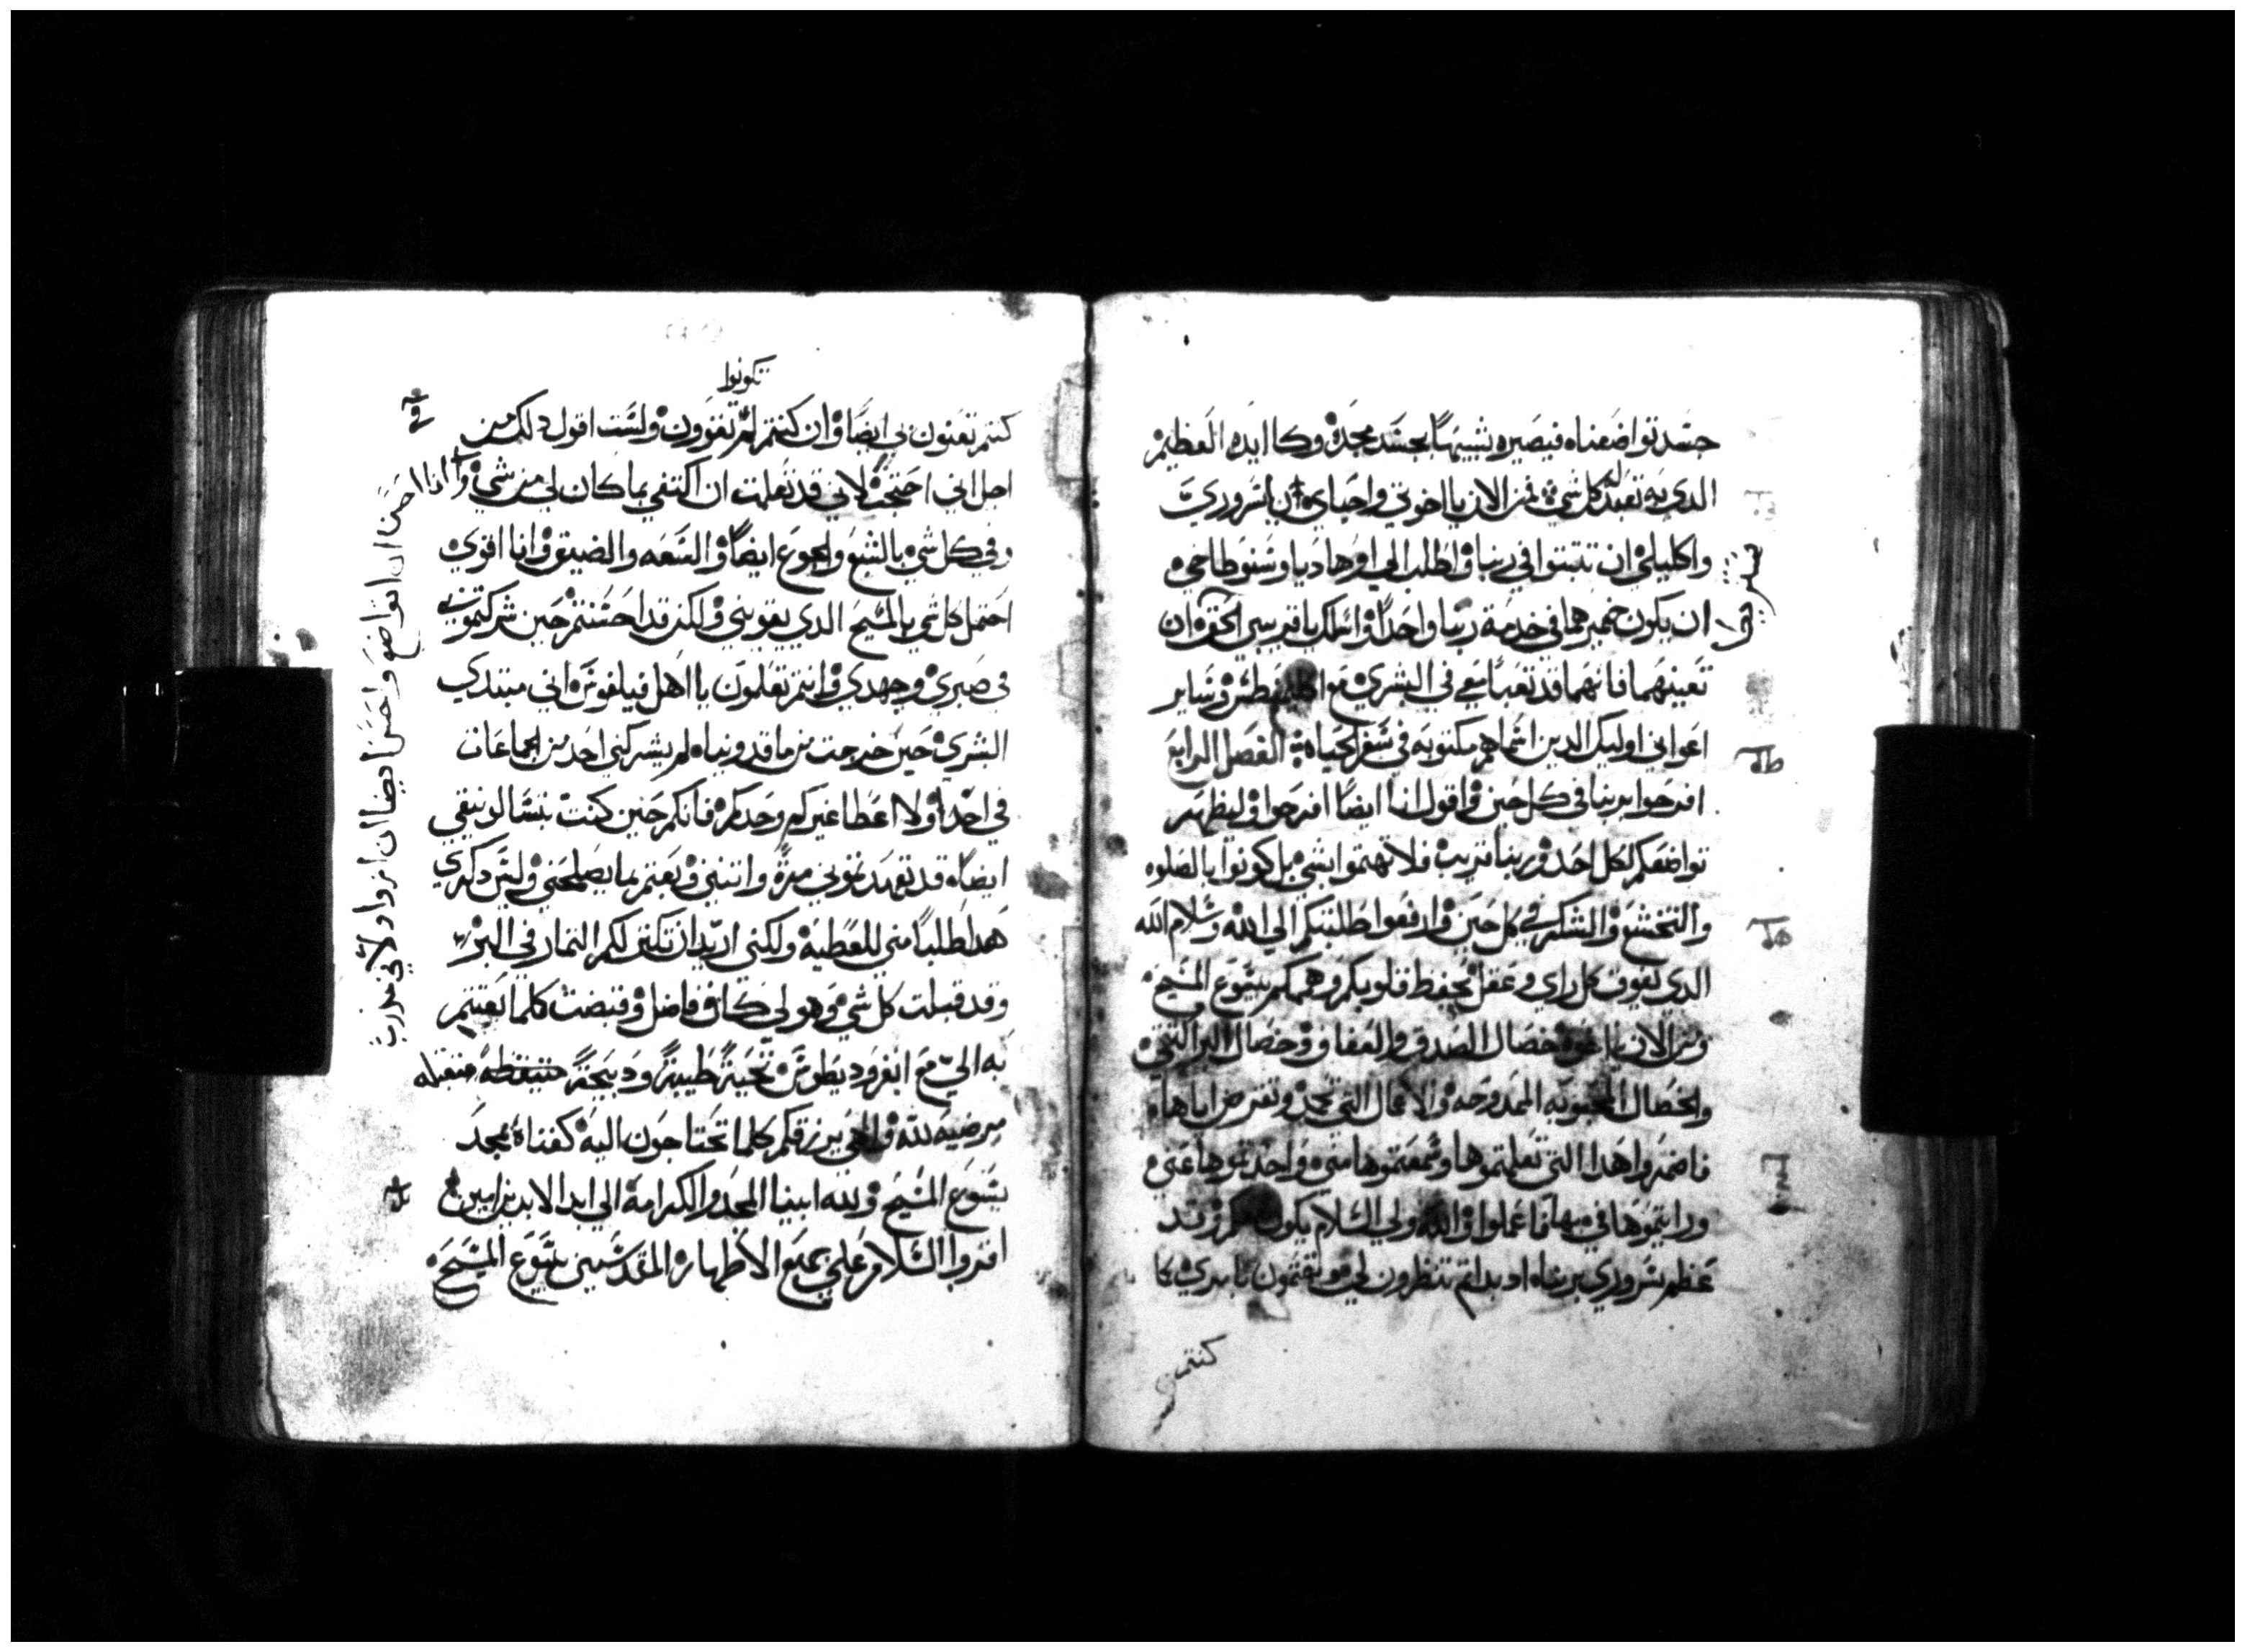 جسد تواضعناه فيصيره شبيهاً بجسد مجده وكا ايده العظيم
الدي به تعبد له كل شي فمن الان يا اخوتي واحباي ان لسروري
واكليلي ان تتبتوا في ربنا واطلب الي اوهاديا وسنوطاخي
ان يكون ضميرهما في خدمة ربنا واحداً واسلك يا قريبي الحق ان
تعينهما فانهما قد تعبا معي في البشري مع اكليمنطس وساير
اعواني اوليك الدين اسماهم مكتوبه في سفر الحياه الفصل الرابع
افرحوا بربنا في كل حين واقول انا ايضاً افرحوا وليظهر
تواضعكم لكل احد وربنا قريب فلا تهتموا بشي بل كونوا بالصلوه
والتخشع والشكر في كل حين وارفعوا طلبتكم الي الله وسلام الله
الدي يفوق كل راي وعقل يحفظ قلوبكم وهممكم بيسوع المسيح
ومن الان يا اخوه خصال الصدق والعفاف وخصال البر النقي
والخصال المحبوبه الممدوحه والاعمال التي تمجد وتقرض اياها
فاضمروا هدا التي تعلمتموها وسمعتموها مني واخدتموها عني
ورايتموها في بهما فاعملوا والله ولي السلام يكون معكم وزند
عظم سروري بربنا اد بداتم تنظرون لي وتهتمون بامري كما
كنتم
تكونوا
كنتم تعنون بي ايضاً وان كنتم لم تقوون ولست اقول دلك من
اجل اني احتجت لاني قد تعلمت ان اكتفي بما كان لي من شي وانا
احسن ان اتواضع واحسن ايضا ان ازداد لاني مدرب
وفي كل شي بالشبع والجوع ايضاً والسعه والضيق وانا اقوي
احتمل كل شي بالمسيح الدي يقويني ولكن قد احسنتم حين شركتموني
في صبري وجهدي وانتم تعلمون يا اهل فيلفوس اني مبتدي
البشري حين خرجت من ماقدونياه لم يشركني احد من الجماعات
في احد ولا اعطا غيركم وحدكم فانكم حين كنت بتسالونيقي
ايضاً قد تعهدتموني مرة واتنتين وبعتم بما يصلحني وليس دكري
هدا طلباً مني للعطيه ولكني اريد ان تكتر لكم التمار في البر
وقد قبلت كل شي وهو لي كاف فاضل وقبضت كلما بعتتم
به الي مع ابفروديطوس تحية طيبة ودبيحة متقبله
مرضيه لله والهي يرزقكم كلما تحتاجون اليه كفناه بمجد
يسوع المسيح ولله ابينا المجد والكرامه الي ابد الابدين امين
اقروا السلام علي جميع الاطهار المقدسين بيسوع المسيح